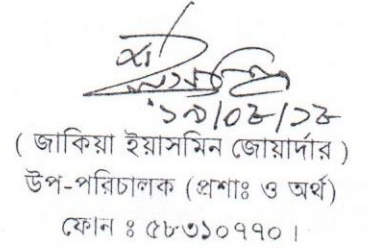 ১৯/০৮/১৮
( জাকিয়া ইয়াসমিন জোয়ার্দার )
উপ-পরিচালক (প্রশাঃ ও অর্থ)
ফোন ঃ ৫৮৩১০৭৭০।